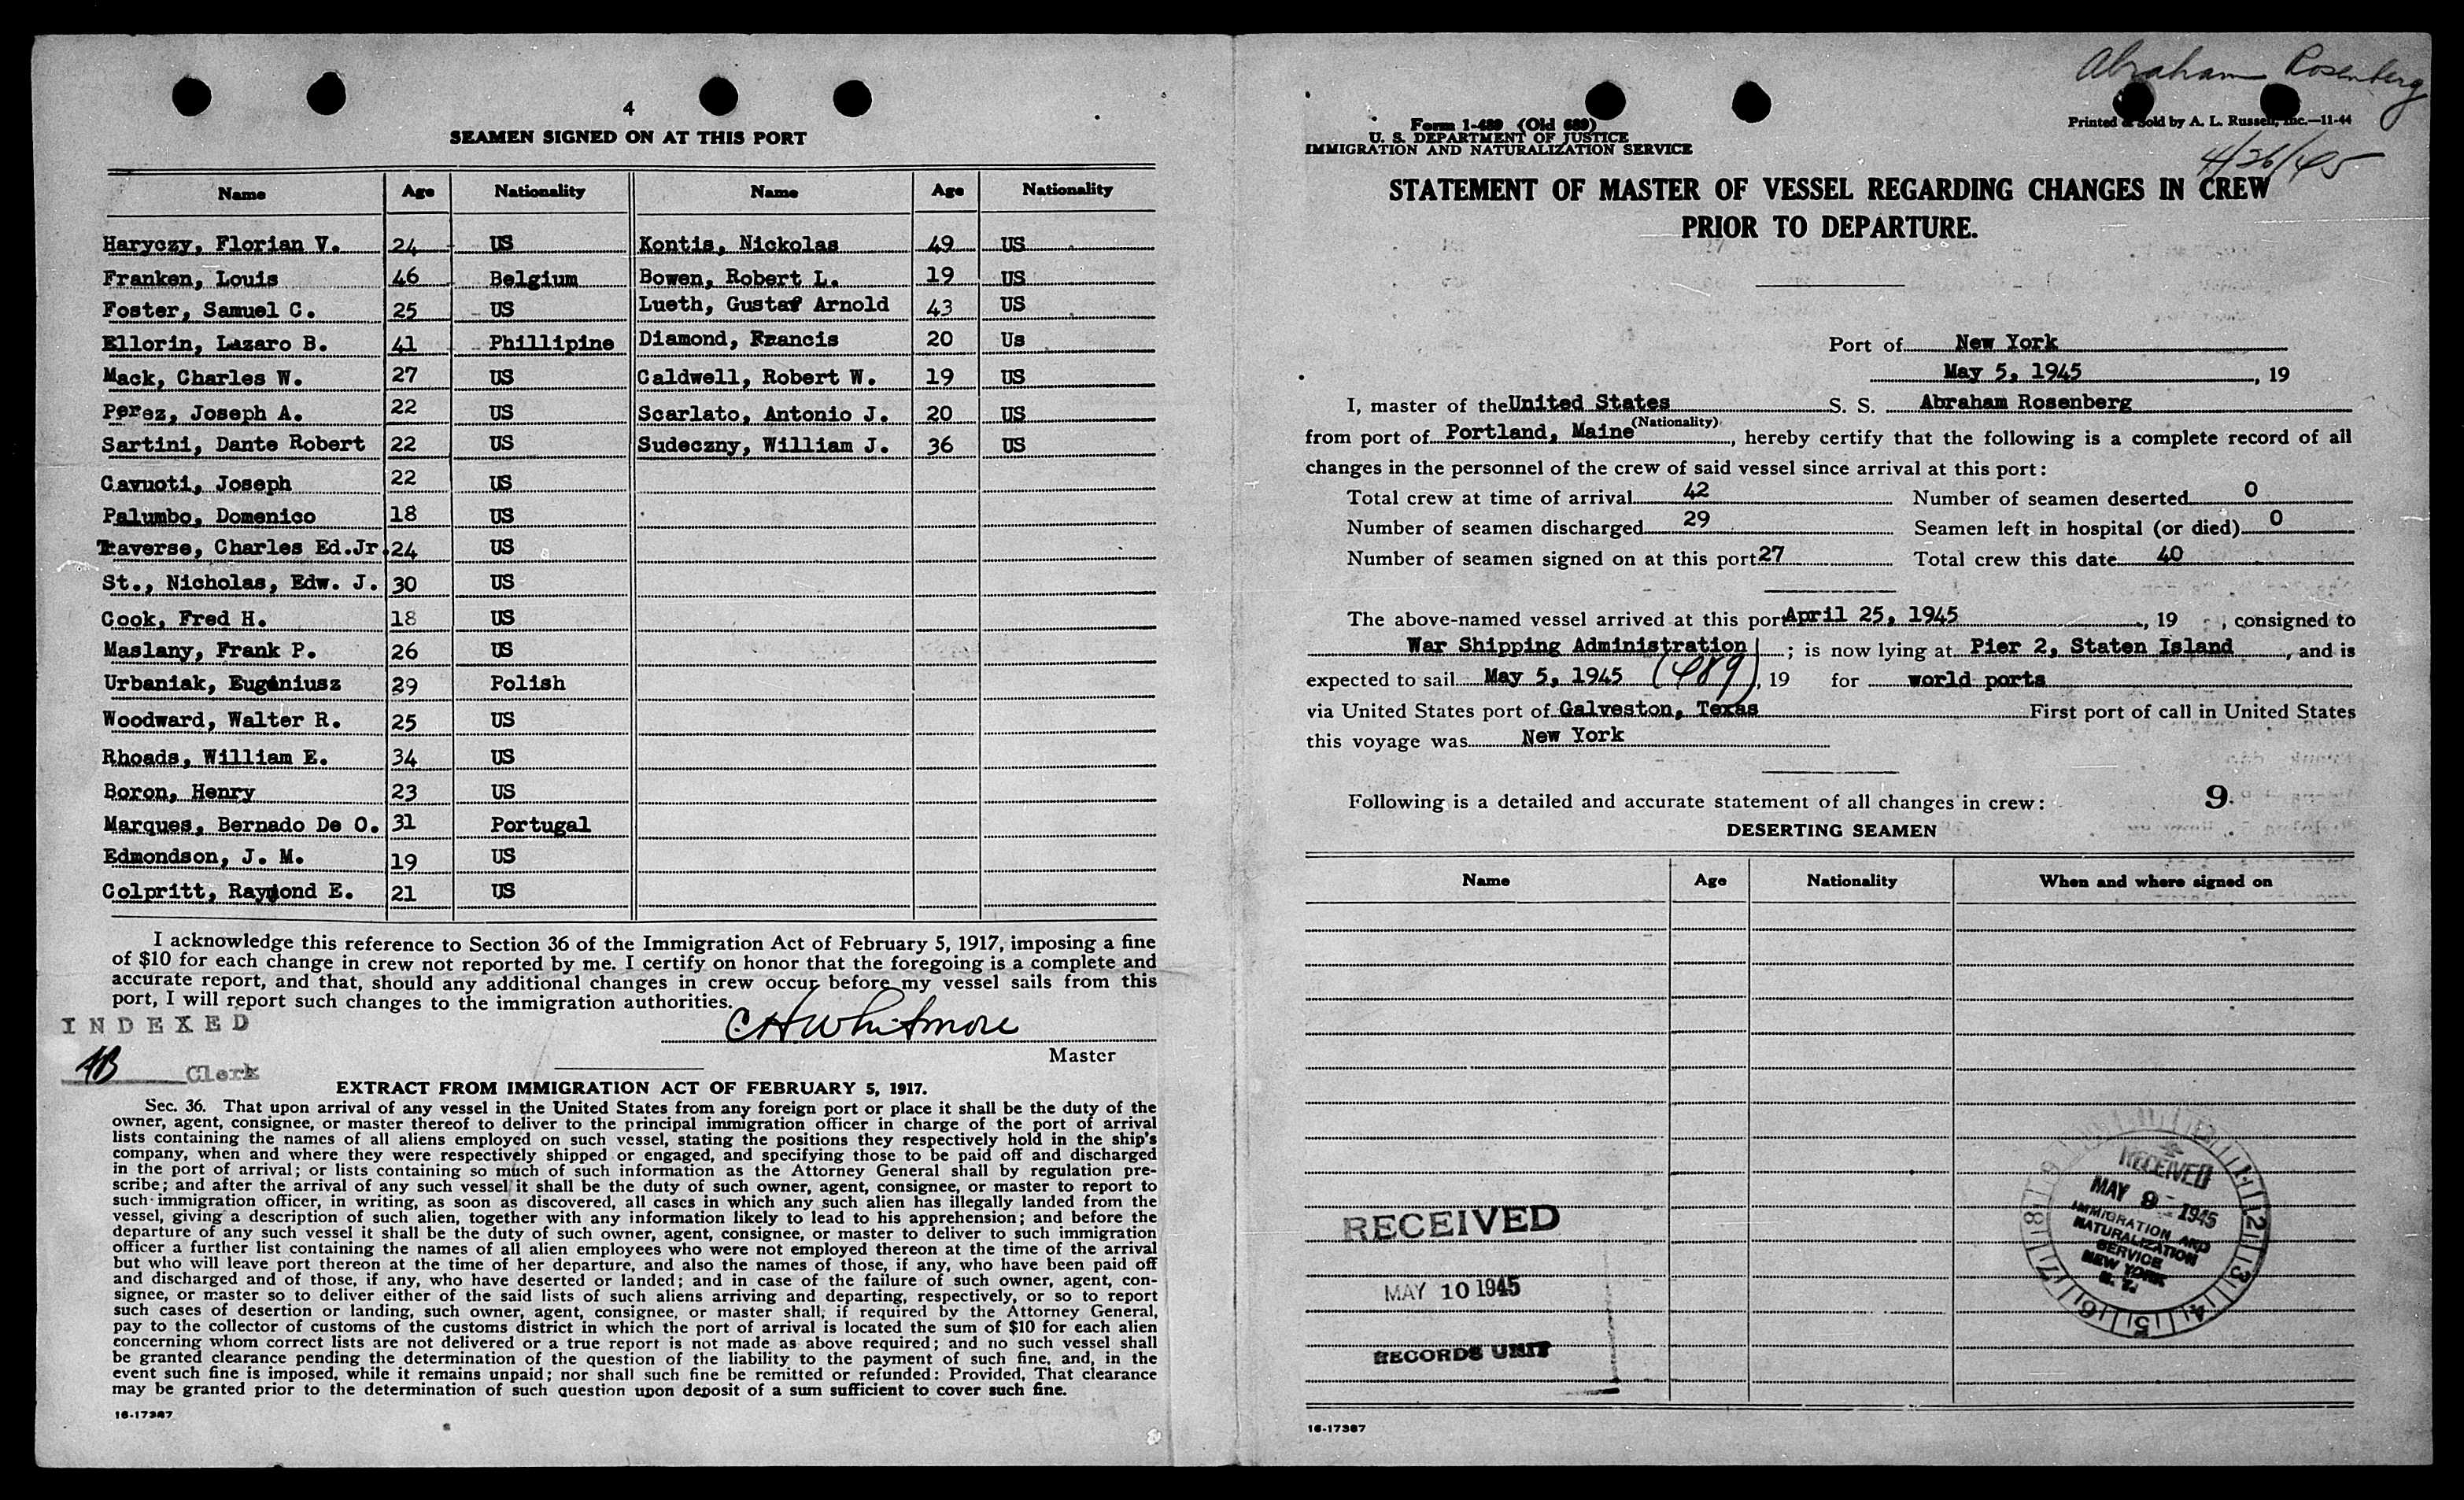 4
SEAMEN SIGNED ON AT THIS PORT
Name Age Nationality Name Age Nationality
Haryczy, Florian V. 24 US Kontis, Nickolas 49 US
Franken, Louis 46 Belgium Bowen, Robert L. 19 US
Foster, Samuel C. 25 US Lueth, Gustaf Arnold 43 US
Ellorin, Lazaro B. 41 Phillipine Diamond, Francis 20 Us
Mack, Charles W. 27 US Caldwell, Robert W. 19 US
Perez, Joseph A. 22 US Scarlato, Antonio J. 20 US
Sartini, Dante Robert 22 US Sudeczny, William J. 36 US
Cavuoti, Joseph 22 US
Palumbo, Domenico 18 US
Traverse, Charles Ed.Jr. 24 US
St., Nicholas, Edw. J. 30 US
Cook, Fred H. 18 US
Maslany, Frank P. 26 US
Urbaniak, Eugeniusz 29 Polish
Woodward, Walter R. 25 US
Rhoads, William E. 34 US
Boron, Henry 23 US
Marques, Bernado De O. 31 Portugal
Edmondson, J. M. 19 US
Colpritt, Raymond E. 21 US
I acknowledge this reference to Section 36 of the Immigration Act of February 5, 1917, imposing a fine
of $10 for each change in crew not reported by me. I certify on honor that the foregoing is a complete and
accurate report, and that, should any additional changes in crew occur before my vessel sails from this
port, I will report such changes to the immigration authorities.
INDEXED
C H Whitmore
Master
Clerk
EXTRACT FROM IMMIGRATION ACT OF FEBRUARY 5, 1917.
Sec. 36. That upon arrival of any vessel in the United States from any foreign port or place it shall be the duty of the
owner, agent, consignee, or master thereof to deliver to the principal immigration officer in charge of the port of arrival
lists containing the names of all aliens employed on such vessel, stating the positions they respectively hold in the ship's
company, when and where they were respectively shipped or engaged, and specifying those to be paid off and discharged
in the port of arrival; or lists containing so much of such information as the Attorney General shall by regulation pre-
scribe; and after the arrival of any such vessel it shall be the duty of such owner, agent, consignee, or master to report to
such immigration officer, in writing, as soon as discovered, all cases in which any such alien has illegally landed from the
vessel, giving a description of such alien, together with any information likely to lead to his apprehension; and before the
departure of any such vessel it shall be the duty of such owner, agent, consignee, or master to deliver to such immigration
officer a further list containing the names of all alien employees who were not employed thereon at the time of the arrival
but who will leave port thereon at the time of her departure, and also the names of those, if any, who have been paid off
and discharged and of those, if any, who have deserted or landed; and in case of the failure of such owner, agent, con-
signee, or master so to deliver either of the said lists of such aliens arriving and departing, respectively, or so to report
such cases of desertion or landing, such owner, agent, consignee, or master shall, if required by the Attorney General,
pay to the collector of customs of the customs district in which the port of arrival is located the sum of $10 for each alien
concerning whom correct lists are not delivered or a true report is not made as above required; and no such vessel shall
be granted clearance pending the determination of the question of the liability to the payment of such fine, and, in the
event such fine is imposed, while it remains unpaid; nor shall such fine be remitted or refunded: Provided, That clearance
may be granted prior to the determination of such question upon deposit of a sum sufficient to cover such fine.
16-17387
Abraham Rosenberg
4/26/45
Form 1-489 (Old 689)
U. S. DEPARTMENT OF JUSTICE
IMMIGRATION AND NATURALIZATION SERVICE
Printed & Sold by A. L. Russell, Inc.—11-44
STATEMENT OF MASTER OF VESSEL REGARDING CHANGES IN CREW
PRIOR TO DEPARTURE.
Port of New York
May 5, 1945, 19
I, master of the United States S. S. Abraham Rosenberg
(Nationality)
from port of Portland, Maine, hereby certify that the following is a complete record of all
changes in the personnel of the crew of said vessel since arrival at this port:
Total crew at time of arrival 42 Number of seamen deserted 0
Number of seamen discharged 29 Seamen left in hospital (or died) 0
Number of seamen signed on at this port 27 Total crew this date 40
The above-named vessel arrived at this port April 25, 1945, 19 , consigned to
War Shipping Administration; is now lying at Pier 2, Staten Island, and is
expected to sail May 5, 1945 (489), 19 for world ports
via United States port of Galveston, Texas First port of call in United States
this voyage was New York
Following is a detailed and accurate statement of all changes in crew: 9.
DESERTING SEAMEN
Name Age Nationality When and where signed on
RECEIVED
MAY 10 1945
RECORDS UNIT
RECEIVED
MAY 9 - 1945
IMMIGRATION AND
NATURALIZATION
SERVICE
NEW YORK
N. Y.
16-17387